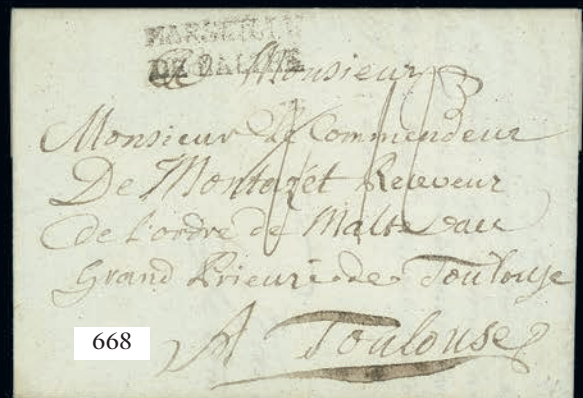 MARSEILLE
DE MALTHE
A Monsieur
Monsieur Le Commendeur
De Montazet Receveur
de l'ordre de Malte au
Grand Prieuré de Toulouse
A Toulouse
668